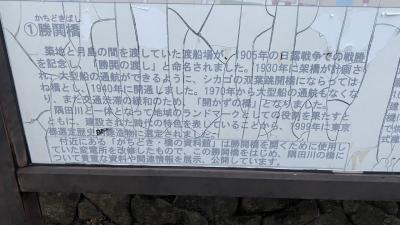 かちどきばし
①勝鬨橋
築地と月島の間を渡していた渡船場が、1905年の日露戦争での戦勝
を記念し、「勝鬨の渡し」と命名されました。1930年に架橋が計画さ
れ、大型船の通航ができるように、シカゴの双葉跳開橋にならっては
ね橋とし、1940年に開通しました。1970年から大型船の通航もなく
なり、また交通渋滞の緩和のため、「開かずの橋」となりました。
隅田川と一体となって地域のランドマークとしての役割を果たすと
ともに、建設された時代の特色を表していることから、1999年に東京
都選定歴史 造物に選定されました。
付近にある「かちどき・橋の資料館」は勝鬨橋を開くために使用し
ていた変電所を改修したもので、この勝鬨橋をはじめ、隅田川の橋に
ついて貴重な資料や関連情報を展示、公開しています。